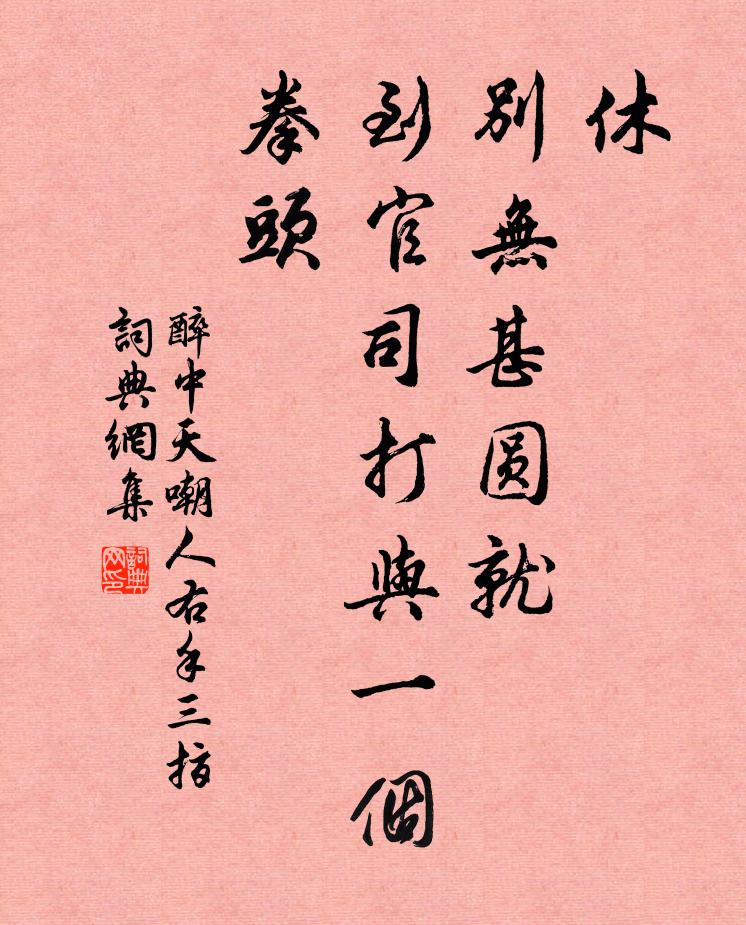 休
別無甚圓就
到官司打與一個
拳頭
醉中天嘲人右手三指
詞典網集
詞典網印